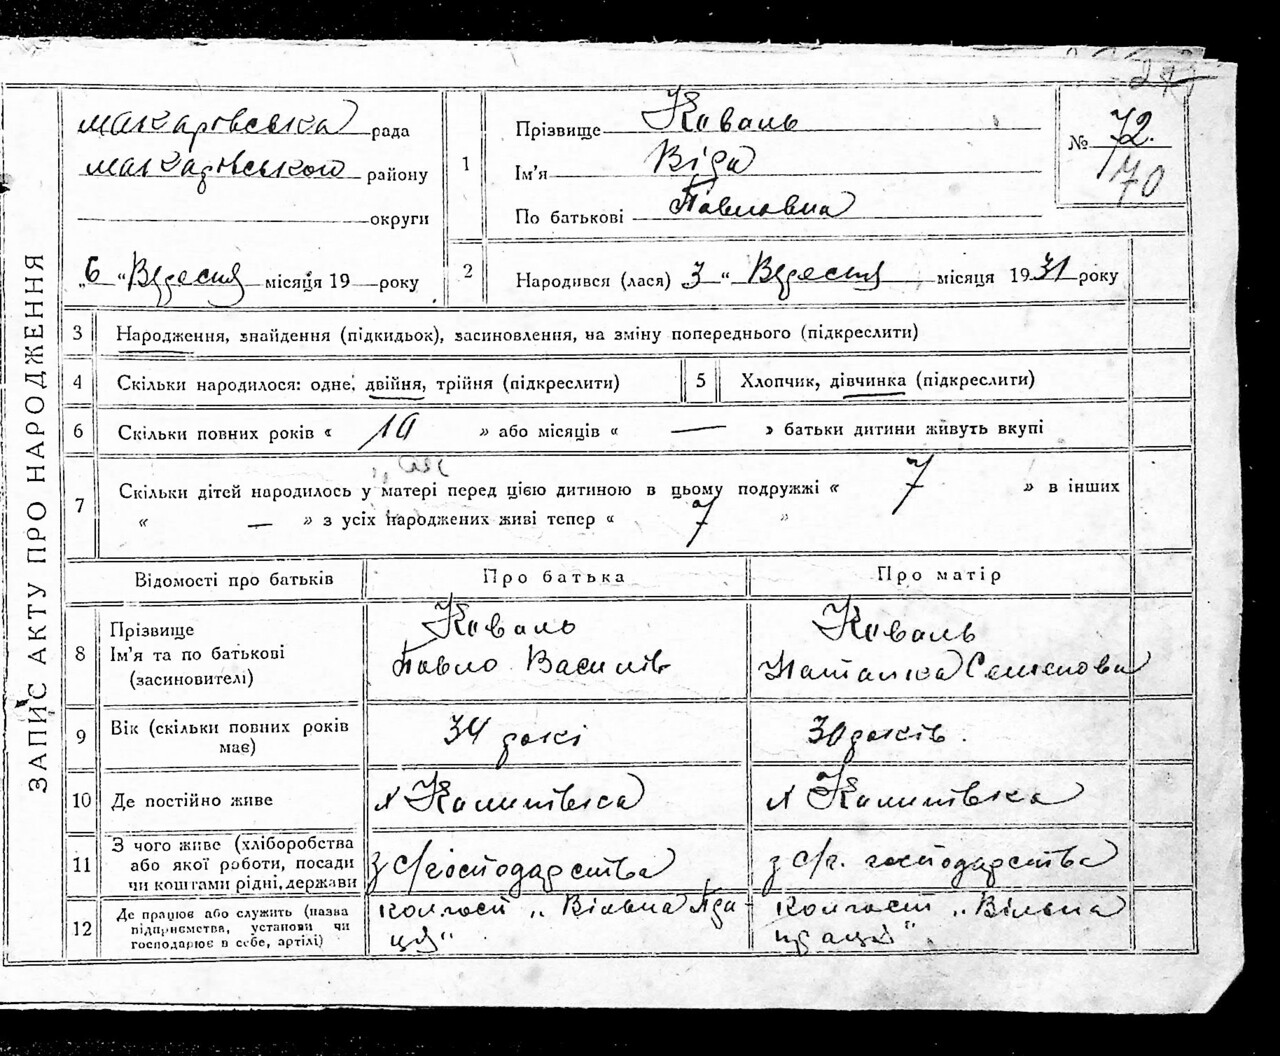 ЗАПИС АКТУ ПРО НАРОДЖЕННЯ
макарівська рада
макарівського району
округи
„6 “ Вересня місяця 19 року
1
Прізвище Коваль
Ім'я Віра
По батькові Павловна
№ 72.
70
2
Народився (лася) 3 “ Вересня місяця 1931 року
3 Народження, знайдення (підкидьок), засиновлення, на зміну попереднього (підкреслити)
4 Скільки народилося: одне, двійня, трійня (підкреслити)
5 Хлопчик, дівчинка (підкреслити)
6 Скільки повних років « 10 » або місяців « — » батьки дитини живуть вкупі
7 Скільки дітей народилось у матері перед цією дитиною в цьому подружжі « 7 » в інших
« — » з усіх народжених живі тепер « 7 »
Відомості про батьків
Про батька
Про матір
8 Прізвище
Ім'я та по батькові
(засиновителі)
Коваль
Павло Василів
Коваль
Наталка Семенова
9 Вік (скільки повних років
має)
34 рокі
30 років.
10 Де постійно живе
х Калинівка
х Калинівка
11 З чого живе (хліборобства
або якої роботи, посади
чи коштами рідні, держави
з с/господарства
з с/г. господарства
12 Де працює або служить (назва
підприємства, установи чи
господарює в себе, артілі)
колгосп „Вільна Пра-
ця“
колгосп „Вільна
праця“